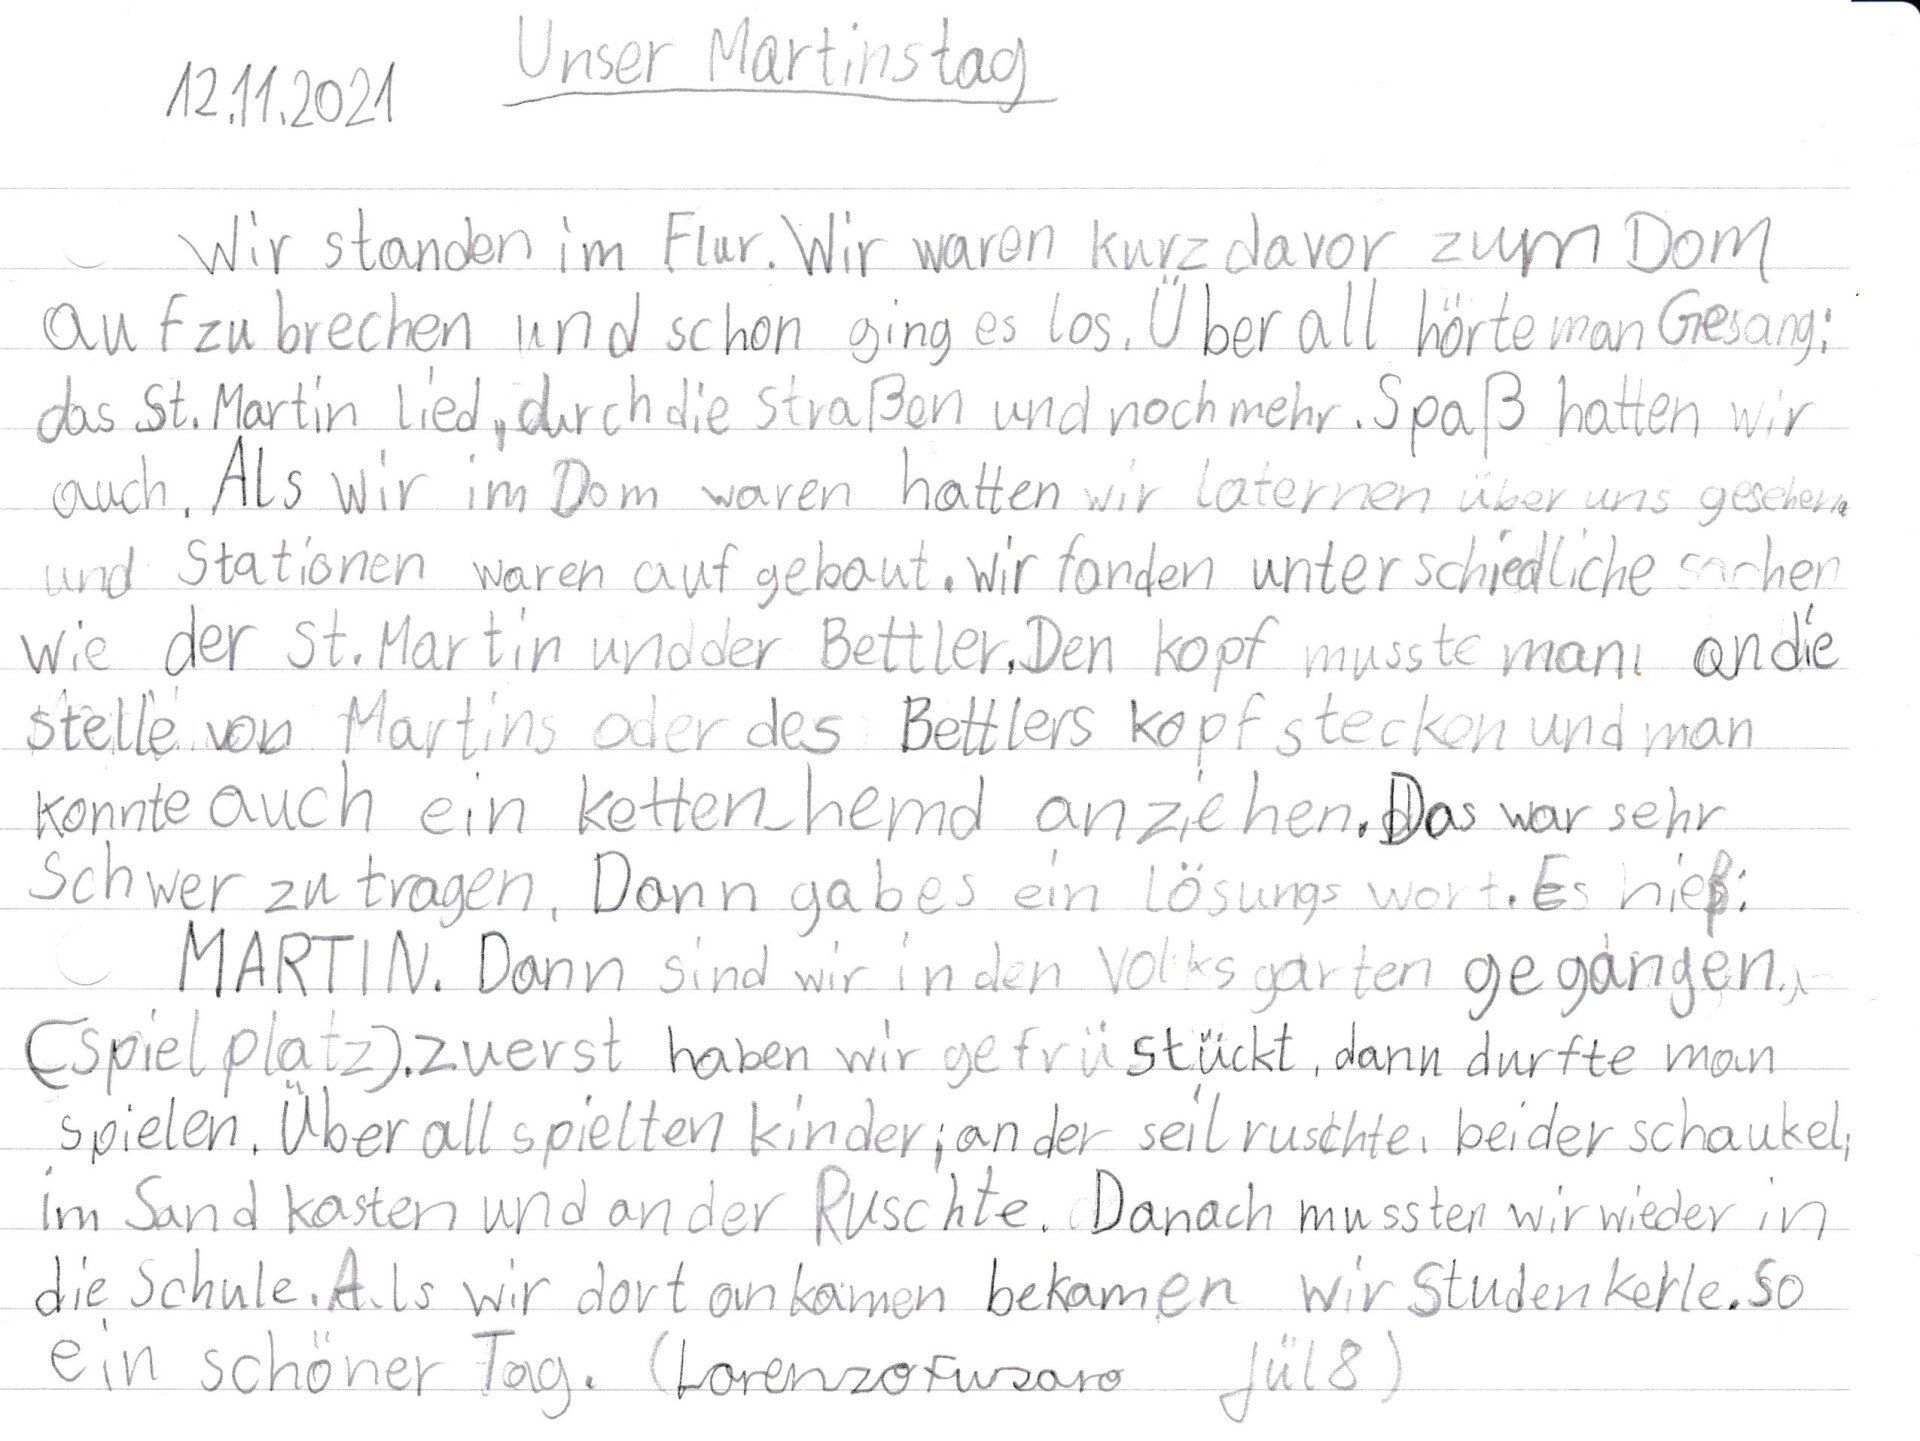 Unser Martinstag
12.11.2021
Wir standen im Flur. Wir waren kurz davor zum Dom
aufzubrechen und schon ging es los. Überall hörte man Gesang:
das St. Martin lied, durch die straßen und noch mehr. Spaß hatten wir
auch. Als wir im Dom waren hatten wir laternen über uns gesehen.
und Stationen waren auf gebaut. wir fanden unterschiedliche sachen
wie der St. Martin und der Bettler. Den kopf musste man an die
stelle von Martins oder des Bettlers kopf stecken und man
konnte auch ein ketten_hemd anziehen. Das war sehr
Schwer zu tragen. Dann gab es ein lösungs wort. Es hieß:
MARTIN. Dann sind wir in den Volksgarten gegangen.
(spielplatz). zuerst haben wir gefrüstückt, dann durfte man
spielen. Überall spielten kinder; an der seilruschte, bei der schaukel,
im Sandkasten und an der Ruschte. Danach mussten wir wieder in
die Schule. Als wir dort ankamen bekamen wir Studenkerle. So
ein schöner Tag. (Lorenzo Fusaro Jül 8)